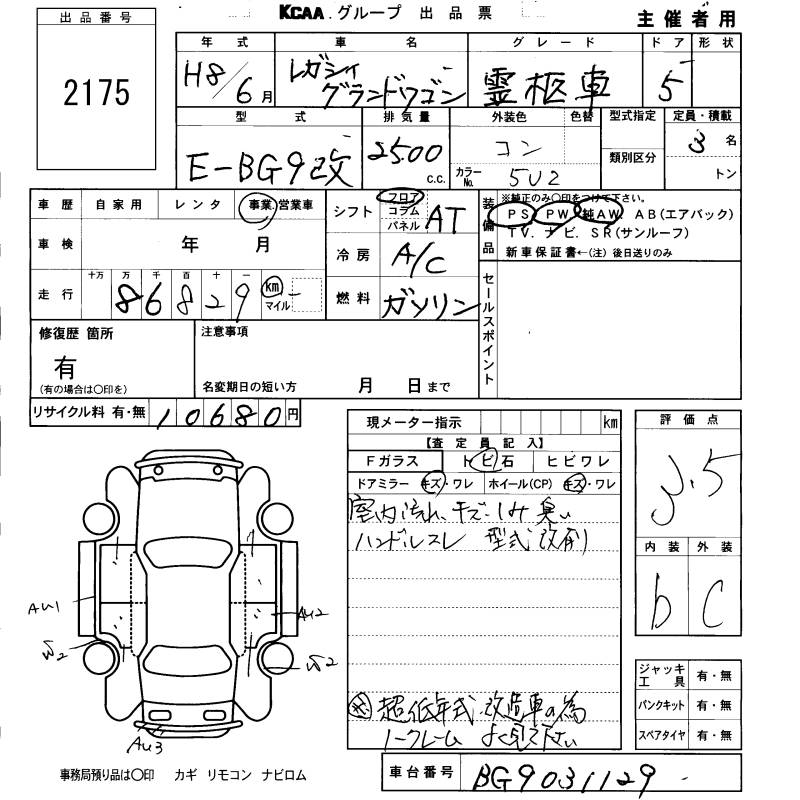 出品番号
KCAA.グループ 出品票
主催者用
2175
年式 車名 グレード ドア 形状
H8/6月 レガシィグランドワゴン 霊柩車 5
型式 排気量 外装色 色替 型式指定 定員・積載
E-BG9改 2500 c.c. コン 3名
カラーNo. 5U2 類別区分 トン
車歴 自家用 レンタ 事業.営業車
シフト フロア コラム パネル AT
装備品 ※純正のみ○印をつけて下さい。
PS PW 純AW AB(エアバック)
TV. ナビ. SR(サンルーフ)
新車保証書←(注) 後日送りのみ
車検 年 月
冷房 A/C
走行 十万 万 千 百 十 一
86829 km マイル
燃料 ガソリン
セールスポイント
修復歴 箇所
有
(有の場合は○印を)
注意事項
名変期日の短い方 月 日まで
リサイクル料 有・無 10680円
現メーター指示 km
【査定員記入】
Fガラス トビ石 ヒビワレ
ドアミラー キズ・ワレ ホイール(CP) キズ・ワレ
室内汚れ、キズ・しみ 臭い
ハンドルスレ 型式改有り
評価点
3.5
内装 外装
b C
AU1
AU2
AU3
ジャッキ工具 有・無
パンクキット 有・無
スペアタイヤ 有・無
超低年式 改造車の為
ノークレーム よく見て下さい
事務局預り品は○印 カギ リモコン ナビロム
車台番号 BG9031129